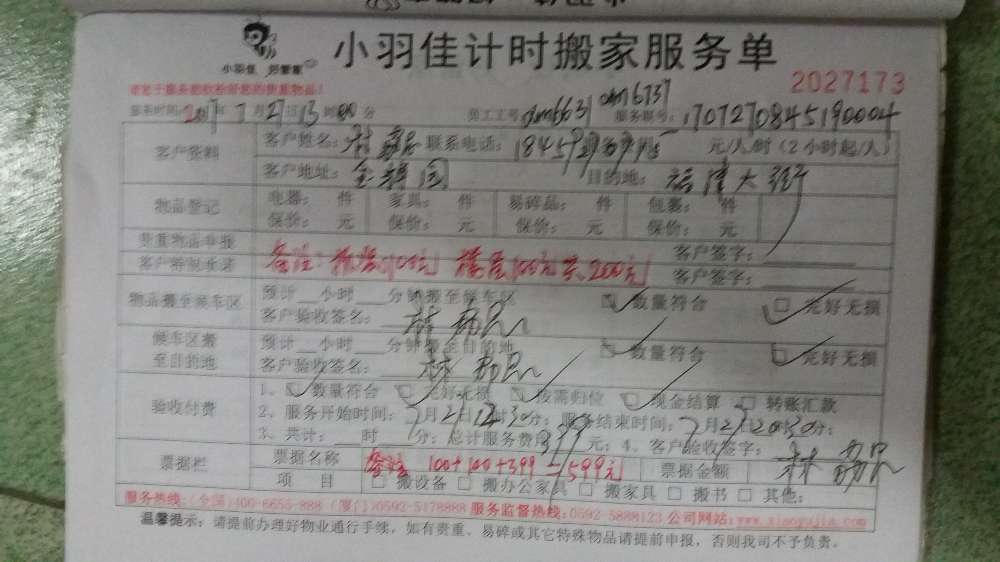 小羽佳计时搬家服务单
小羽佳
2027173
服务时间:2017年7月27日13时00分 员工工号 服务账号:1707270845190004
客户资料
客户姓名:林 联系电话: 元/人/时(2小时起/人)
客户地址:金 园 目的地:福 大街
物品登记
电器: 件 家具: 件 易碎品: 件 包裹: 件
保价: 元 保价: 元 保价: 元 保价: 元
贵重物品申报 客户签字:
备注:拆装100元 楼层100元共200元
客户签字:
物品搬至候车区
预计__小时___分钟搬至候车区 数量符合 完好无损
客户验收签名:林
候车区搬至目的地
预计__小时___分钟搬至目的地 数量符合 完好无损
客户验收签名:林
验收付费
1、 数量符合 完好无损 按需归位 现金结算 转账汇款
2、服务开始时间:7月27日 时30分;服务结束时间:7月27日20时30分;
3、共计:___时___分;总计服务费用399元;4、客户验收签字:林
票据栏
票据名称 备注 100+100+399=599元 票据金额
项 目 搬设备 搬办公家具 搬家具 搬书 其他:
服务热线:(全国)400-6655-888 (厦门)0592-5178888 服务监督热线:0592-5888123 公司网站:www.xiaoyujia.com
温馨提示:请提前办理好物业通行手续,如有贵重、易碎或其它特殊物品请提前申报,否则我司不予负责。